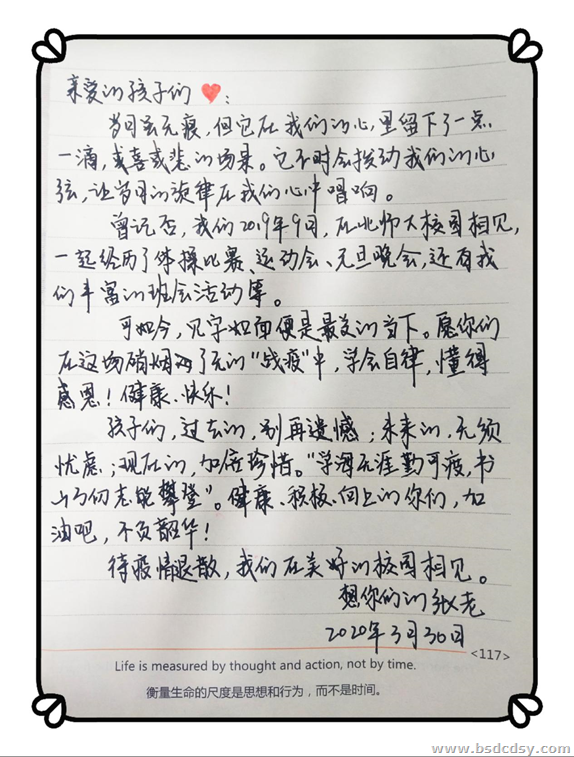 亲爱的孩子们❤:
岁月虽无痕,但它在我们的心里留下了一点
一滴,或喜或悲的场景。它不时会拨动我们的心
弦,让岁月的旋律在我们心中唱响。
曾记否,我们2019年9月,在北师大校园相见,
一起经历了体操比赛、运动会、元旦晚会,还有我
们丰富的班会活动等。
可如今,见字如面便是最美的当下。愿你们
在这场硝烟的"战疫"中,学会自律,懂得
感恩!健康、快乐!
孩子们,过去的,别再遗憾;未来的,无须
忧虑;现在的,加倍珍惜。"学海无涯勤可渡,书
山万仞志能攀登"。健康、积极、向上的你们,加
油吧,不负韶华!
待疫情退散,我们在美好的校园相见。
想你们的张老
2020年3月30日
<117>
Life is measured by thought and action, not by time.
衡量生命的尺度是思想和行为,而不是时间。
www.bsdcdsy.com